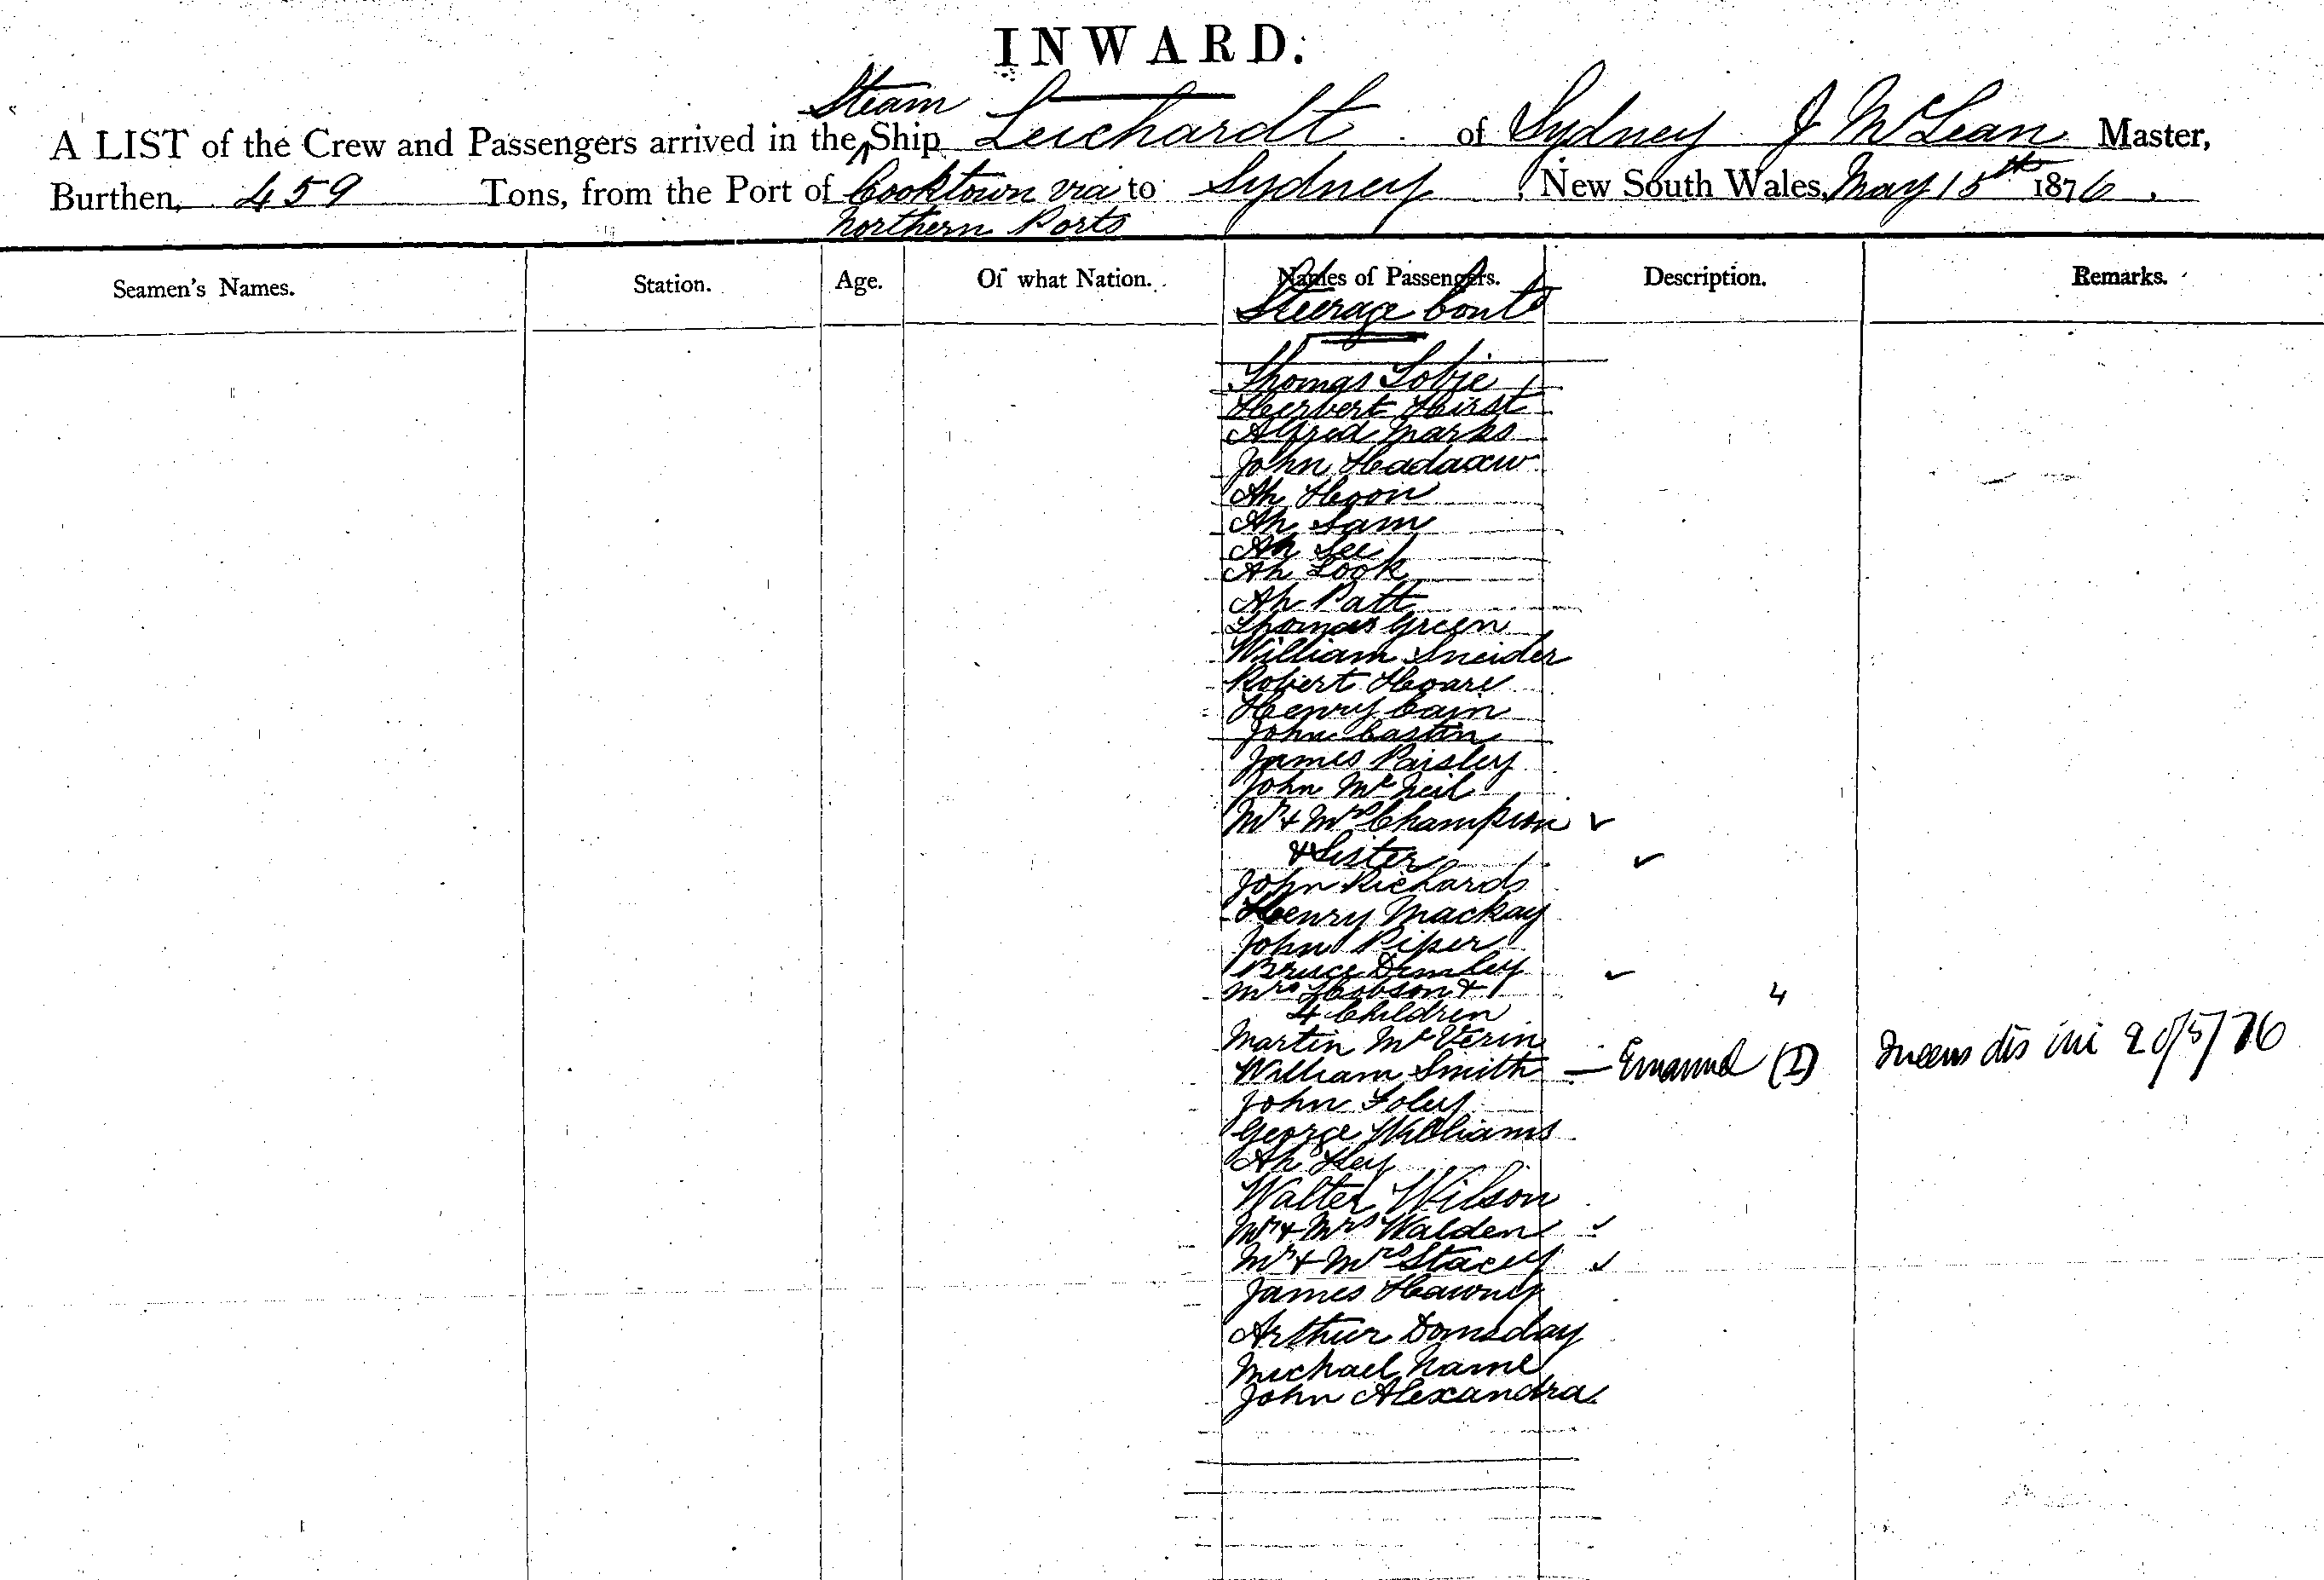 INWARD.
A LIST of the Crew and Passengers arrived in the Steam Ship Leichardt of Sydney J McLean Master,
Burthen, 459 Tons, from the Port of Cooktown via Northern Ports to Sydney, New South Wales, May 15th 1876.
Seamen's Names. Station. Age. Of what Nation. Names of Passengers. Description. Remarks.
Steerage Contd
Thomas Lobie
Herbert Hirst
Alfred Marks
John
Ah Hoon
Ah Sam
Ah See
Ah Look
Ah Patt
Thomas Green
William Sneider
Robert Hoare
Henry Cain
John Castin
James Paisley
John McNeil
Mr & Mrs Champion
& Sister
John Richards
Henry Mackay
John Piper
Bruce
Mrs Hobson &
4 Children 4
Martin McVerin
William Smith — Emanuel (2) Queens dis 20/5/76
John Foley
George Williams
Ah Hey
Walter Wilson
Mr & Mrs Walden
Mr & Mrs Stacey
James
Arthur Domsday
Michael
John Alexandra